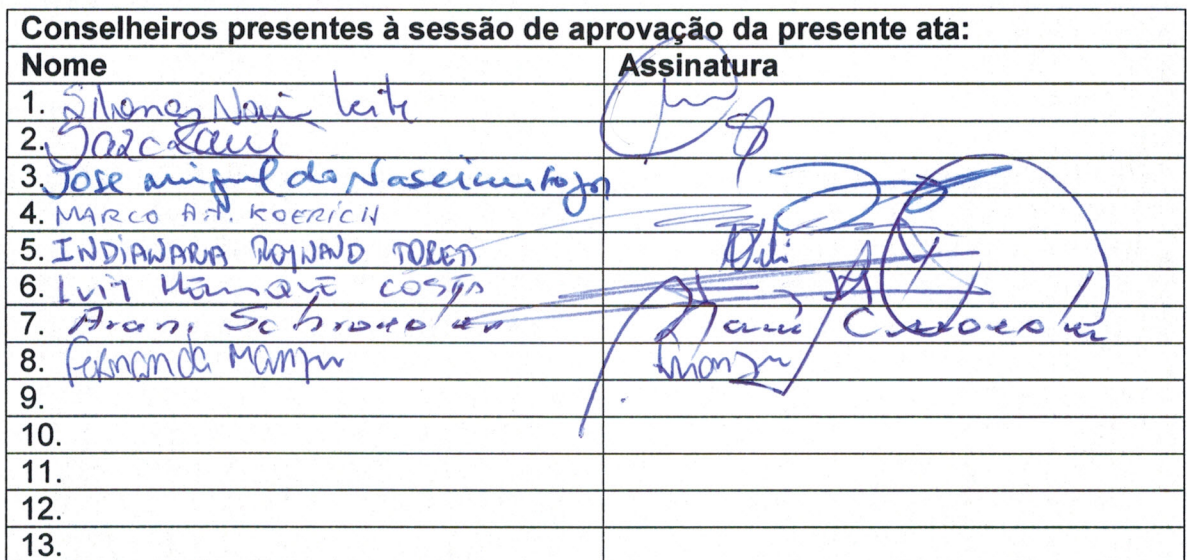 Conselheiros presentes à sessão de aprovação da presente ata:
Nome Assinatura
1. Silvana Nair Leite
2.
3. José Miguel do Nascimento Jr
4. MARCO A.M. KOERICH
5. INDIANARA REYNAUD TORETI
6. LUIZ HENRIQUE COSTA
7. Arani Schroeder Arani Schroeder
8. Fernanda Manzini Manzini
9.
10.
11.
12.
13.